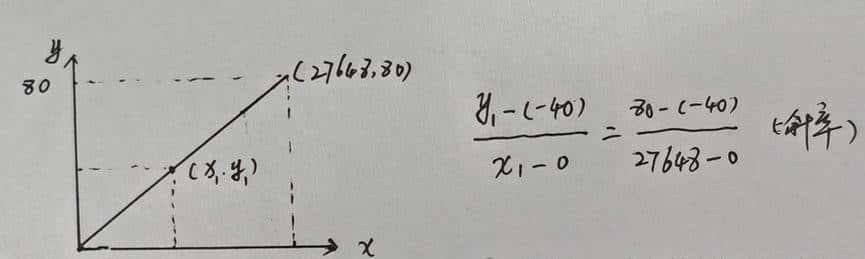 y
80
(27648,80)
(x₁.y₁)
x
y₁-(-40) / x₁-0 = 80-(-40) / 27648-0 (斜率)